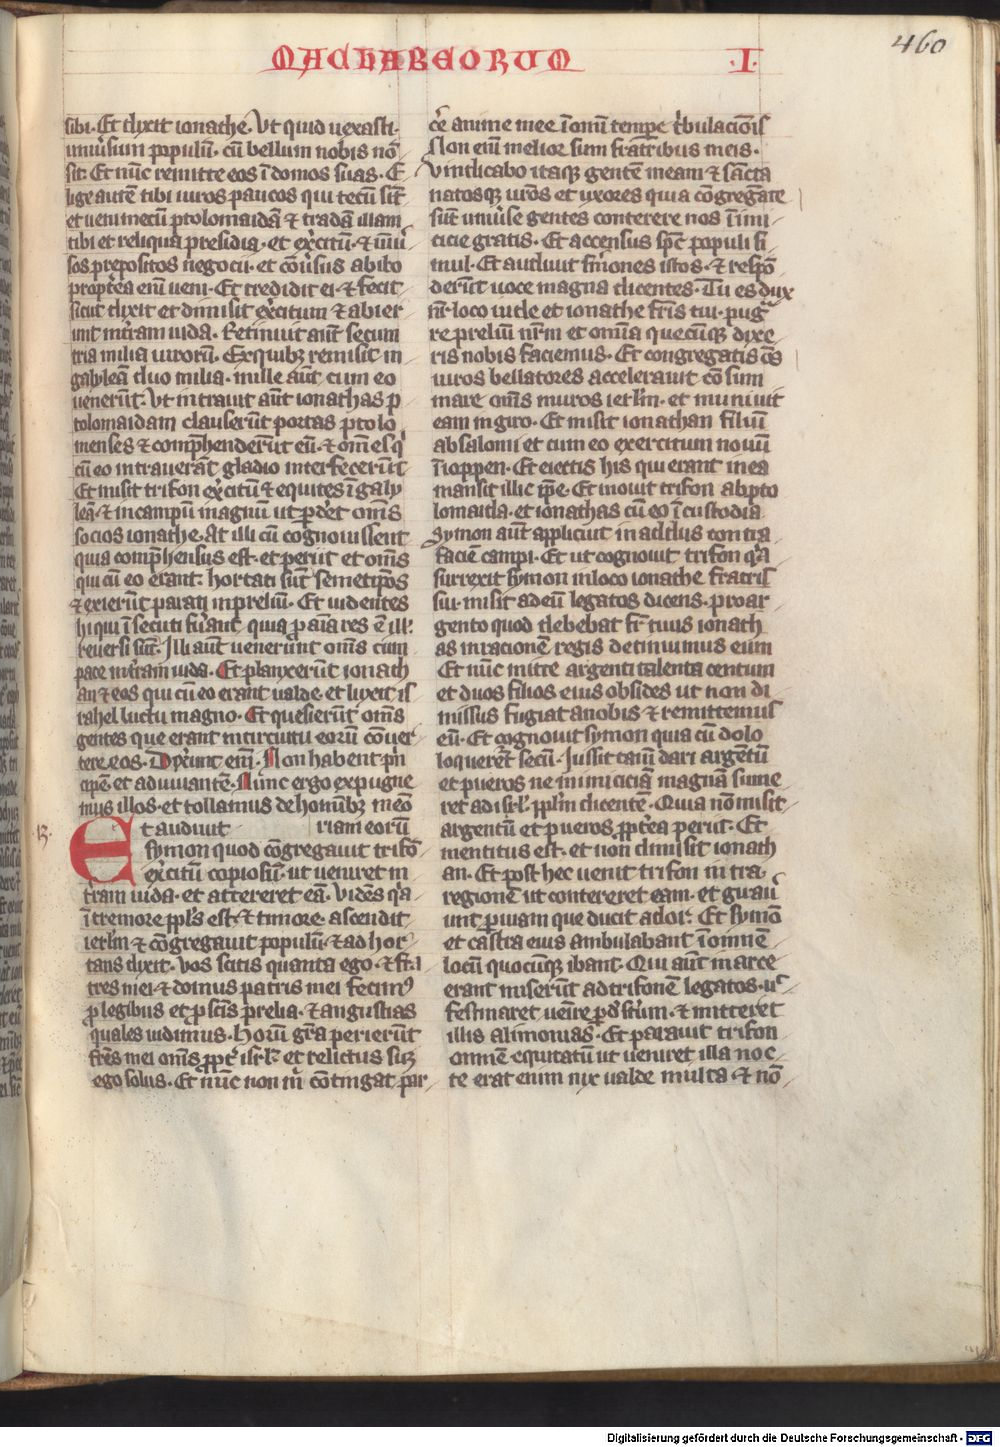 460
MACHABEORUM
.I.
sibi. Et dixit ionathe. Ut quid uexasti
uniu͛sum populū. cū bellum nobis nō
sit. Et nūc remitte eos ī domos suas. E
lige autē tibi uiros paucos qui tecū sīt
et ueni mecū ptolomaidā ⁊ tradā illam
tibi et reliqua presidia. et ex͛citū. ⁊ uniu͛
sos prepositos negocii. et cōu͛sus abibo
propt͛ea enī ueni. Et credidit ei. ⁊ fecit
sicut dixit et dimisit ex͛citum ⁊ abier
unt in t͛ram iuda. Retinuit aūt secum
tria milia uirorū. Ex quibꝫ remisit in
galyleā duo milia. mille aūt cum eo
uenerūt. Ut intrauit aūt ionathas p
tolomaidam clauserūt portas ptolo
menses ⁊ comp̄henderūt eū. ⁊ om̄es q͛
cū eo intrauerāt gladio interfecerūt
Et misit trifon ex͛citū ⁊ equites ī galy
leā. ⁊ in campū magnū ut ꝑd͛et om̄s
socios ionathe. At illi cū cognouissent
quia comp̄hensus est. et periit et om̄s
qui cū eo erant. hortati sūt semetip̄os
⁊ exierūt parati in preliū. Et uidentes
hi qui īsecuti fu͛ant. quia ꝓ aīa res ē ill͛.
reuersi sūt. Illi aūt uenerunt om̄s cum
pace in t͛ram iuda. Et planxerūt ionath
an ⁊ eos qui cū eo erant ualde. et luxit is
rahel luctu magno. Et quesierūt om̄s
gentes que erant in circuitu eorū cōuer
tere eos. Dix͛unt enī. Non habent p͛n
cipē et adiuuantē. Nunc ergo expugne
mus illos. et tollamus de hominibꝫ meō
13.
Et audiuit riam eorū
symon quod cōgregauit trifō
ex͛citū copiosū. ut ueniret in
t͛ram iuda. et attereret eā. Vidēs q͛a
ī tremore pp̄ls est. ⁊ timore. ascendit
ierl̄m ⁊ cōgregauit populū. ⁊ ad hor
tans dixit. Vos scitis quanta ego. ⁊ fr̄a
tres mei ⁊ domus patris mei fecim᷒
ꝓ legibus et ꝓ sc̄is prelia. ⁊ angustias
quales uidimus. Horū gr̄a perierūt
fr̄es mei om̄s ꝓpt͛ isrl̄. et relictus sū
ego solus. Et nūc non m͛ cōtingat par
c͛e anime mee ī om̄i tempe t͛bulaciōis
Non enī melior sum fratribus meis.
Vindicabo itaqꝫ gentē meam ⁊ sācta
natosqꝫ ur̄os et uxores quia cōgregate
sūt uniu͛se gentes conterere nos īimi
cicie gratis. Et accensus sp̄c populi si
mul. Et audiuit s͛mones istos. ⁊ respō
derūt uoce magna dicentes. Tu es dux
nr̄ loco iude et ionathe fr̄is tui. pug͛
re preliū nr̄m et omīa quecūqꝫ dixe
ris nobis faciemus. Et congregatis ōs
uiros bellatores accelerauit cōsum
mare om̄s muros ierl̄m. et muniuit
eam in giro. Et misit ionathan filiū
absalomi et cum eo exercitum nouū
ī ioppen. Et eiectis his qui erant in ea
mansit illic ip̄e. Et mouit trifon ab pto
lomaida. et ionathas cū eo ī custodia
Symon aūt applicuit in addus contra
faciē campi. Et ut cognouit trifon q͛a
surrexit symon in loco ionathe fratris
sui. misit ad eū legatos dicens. pro ar
gento quod debebat fr̄ tuus ionath
as in racionē regis detinuimus eum
Et nūc mitte argenti talenta centum
et duos filios eius obsides ut non di
missus fugiat a nobis ⁊ remittemus
eū. Et cognouit symon quia cū dolo
loqueret͛ secū. Iussit tam̄ dari argētū
et pueros ne inimiciciā magnā sume
ret ad isrl̄. pp̄lm dicentē. Quia nō misit
argentū et pueros ꝓpt͛ea periit. Et
mentitus est. et non dimisit ionath
an. Et post hec uenit trifon in tra
regionē ut contereret eam. et girau͛
unt ꝑ uiam que ducit ador. Et symō
et castra eius ambulabant ī omnē
locū quocūqꝫ ibant. Qui aūt in arce
erant miserūt ad trifonē legatos. ut
festinaret uēire ꝑ des͛tum. ⁊ mitteret
illis alimonias. Et parauit trifon
omnē equitatū ut ueniret illa noc
te erat enim nix ualde multa ⁊ nō
Digitalisierung gefördert durch die Deutsche Forschungsgemeinschaft - DFG